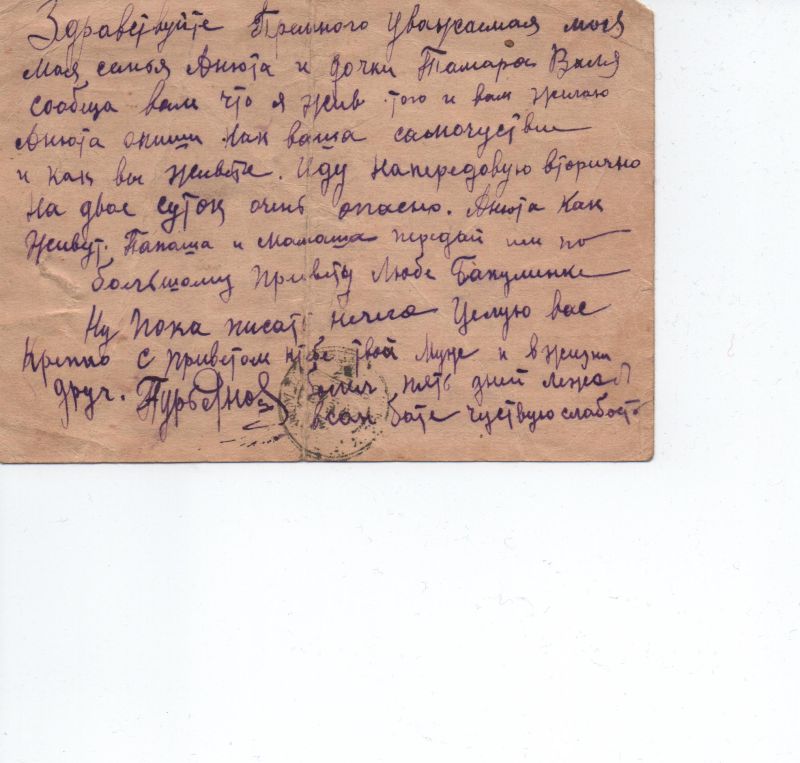 Здравствуйте Премного Уважаемая моея
Мая семья Анюта и дочки Тамара Валя
сообща вам что я жив того и вам желаю
Анюта опиши как ваша самочуствие
и как вы живете. Иду на передовую вторично
на двое суток очень опасно. Анюта как
живут. Папаша и мамаша передай им по
большому привету Любе Бакулинке
Ну пока писать нечего Целую вас
Крепко с приветом к тебе твой Муже и в жизни
друг. Пурьянов был пять дней лежал
в сан бате чуствую слабость